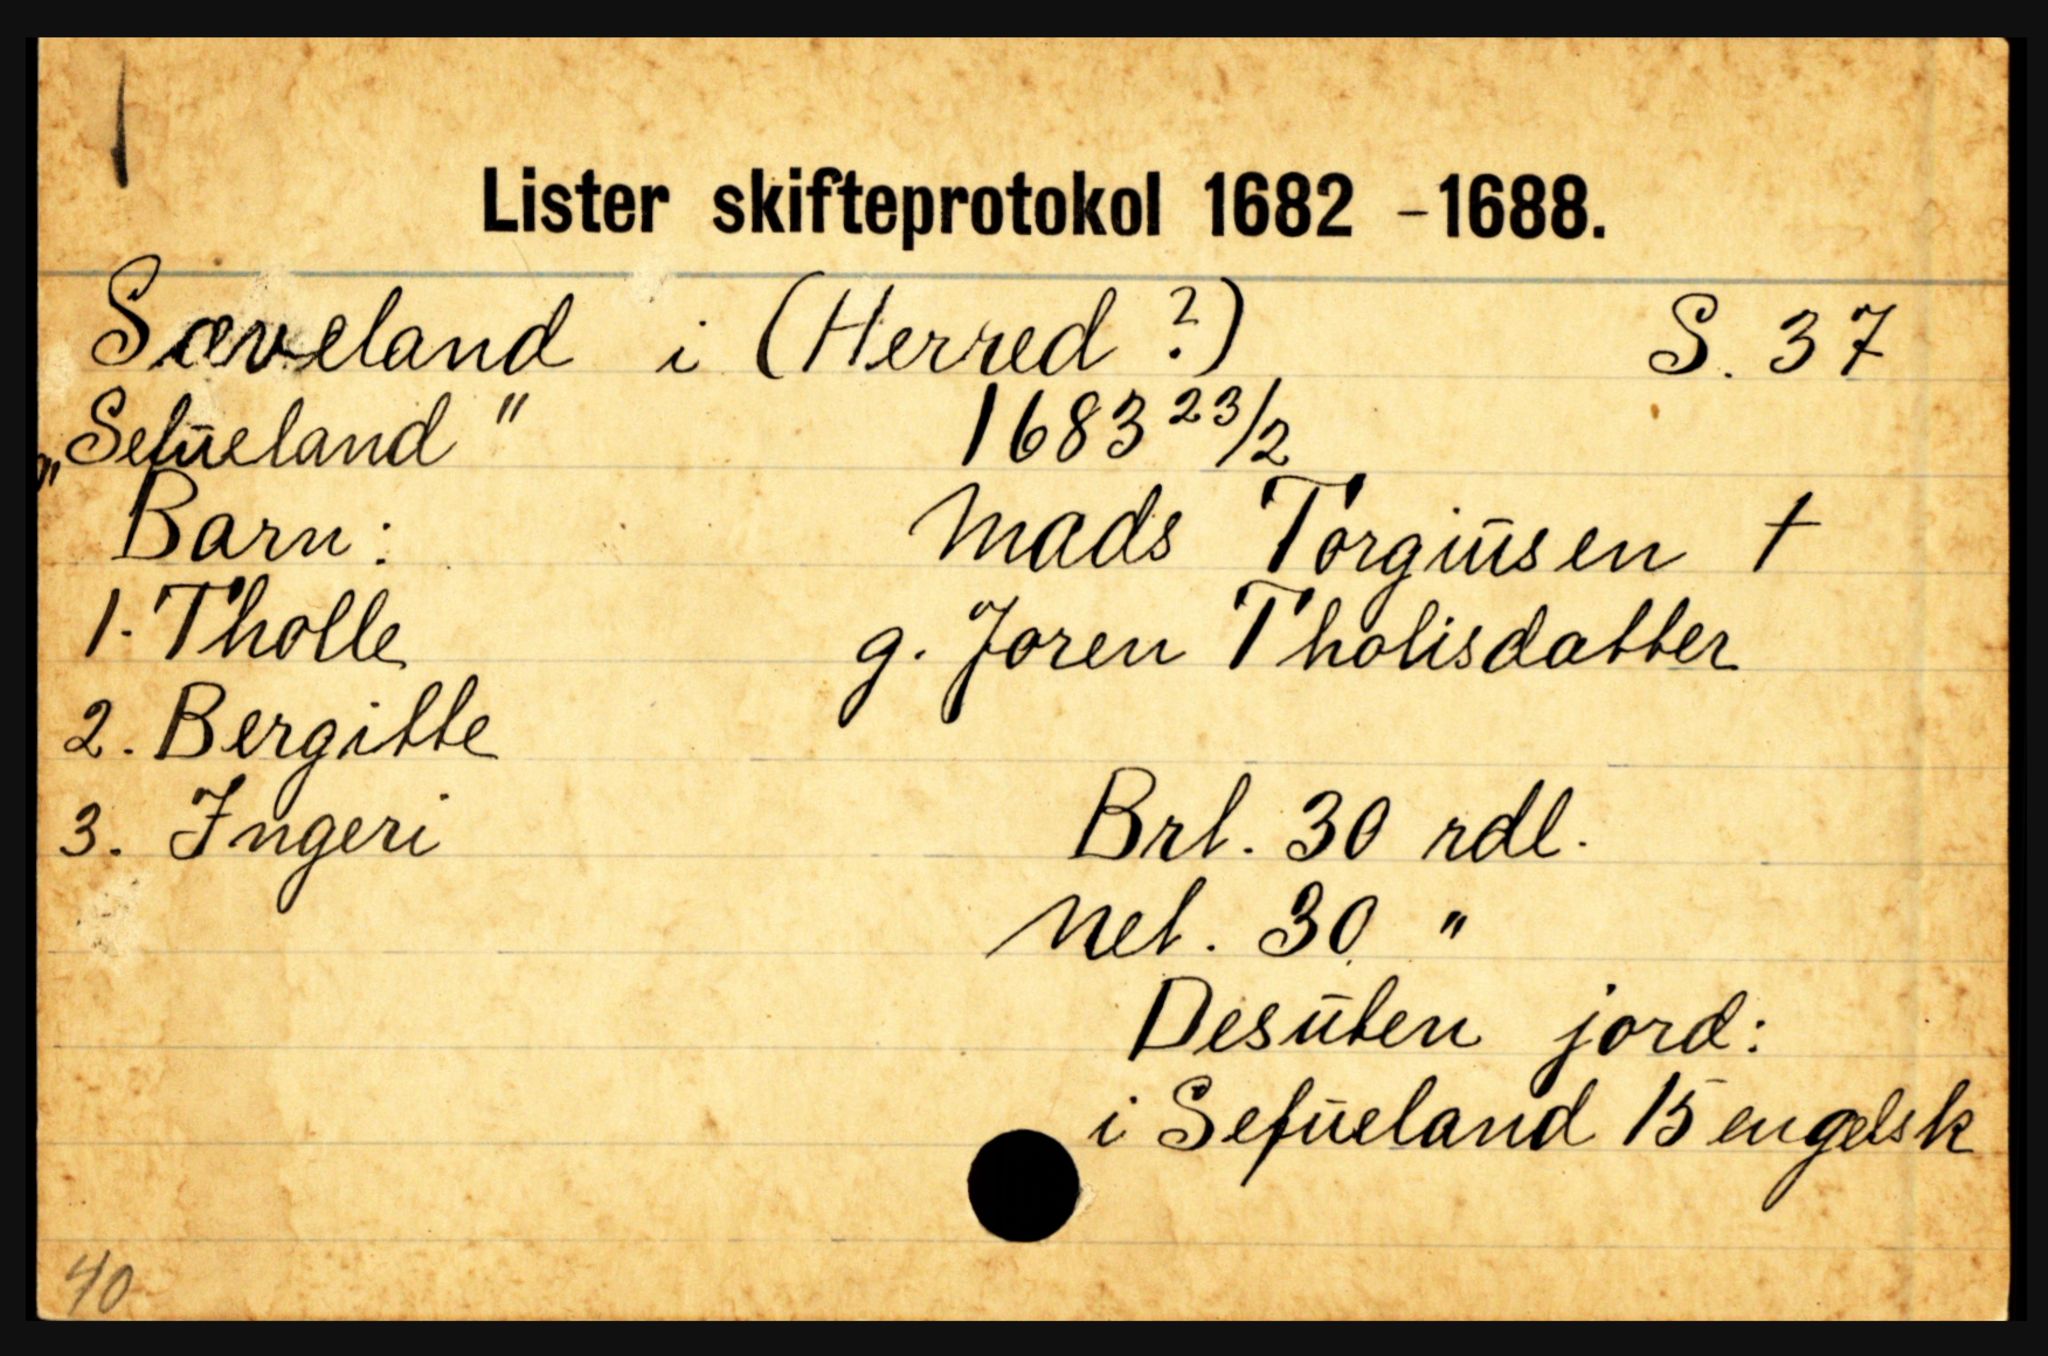 Lister skifteprotokol 1682 - 1688.
Sæveland i (Herred ?) S. 37
„Sefueland" 1683 23/2
Barn: Mads Torgiusen †
1. Tholle g. Joren Tholisdatter
2. Bergitte
3. Ingeri Brt. 30 rdl.
Net. 30 "
Desuten jord:
i Sefueland 15 engelsk
40